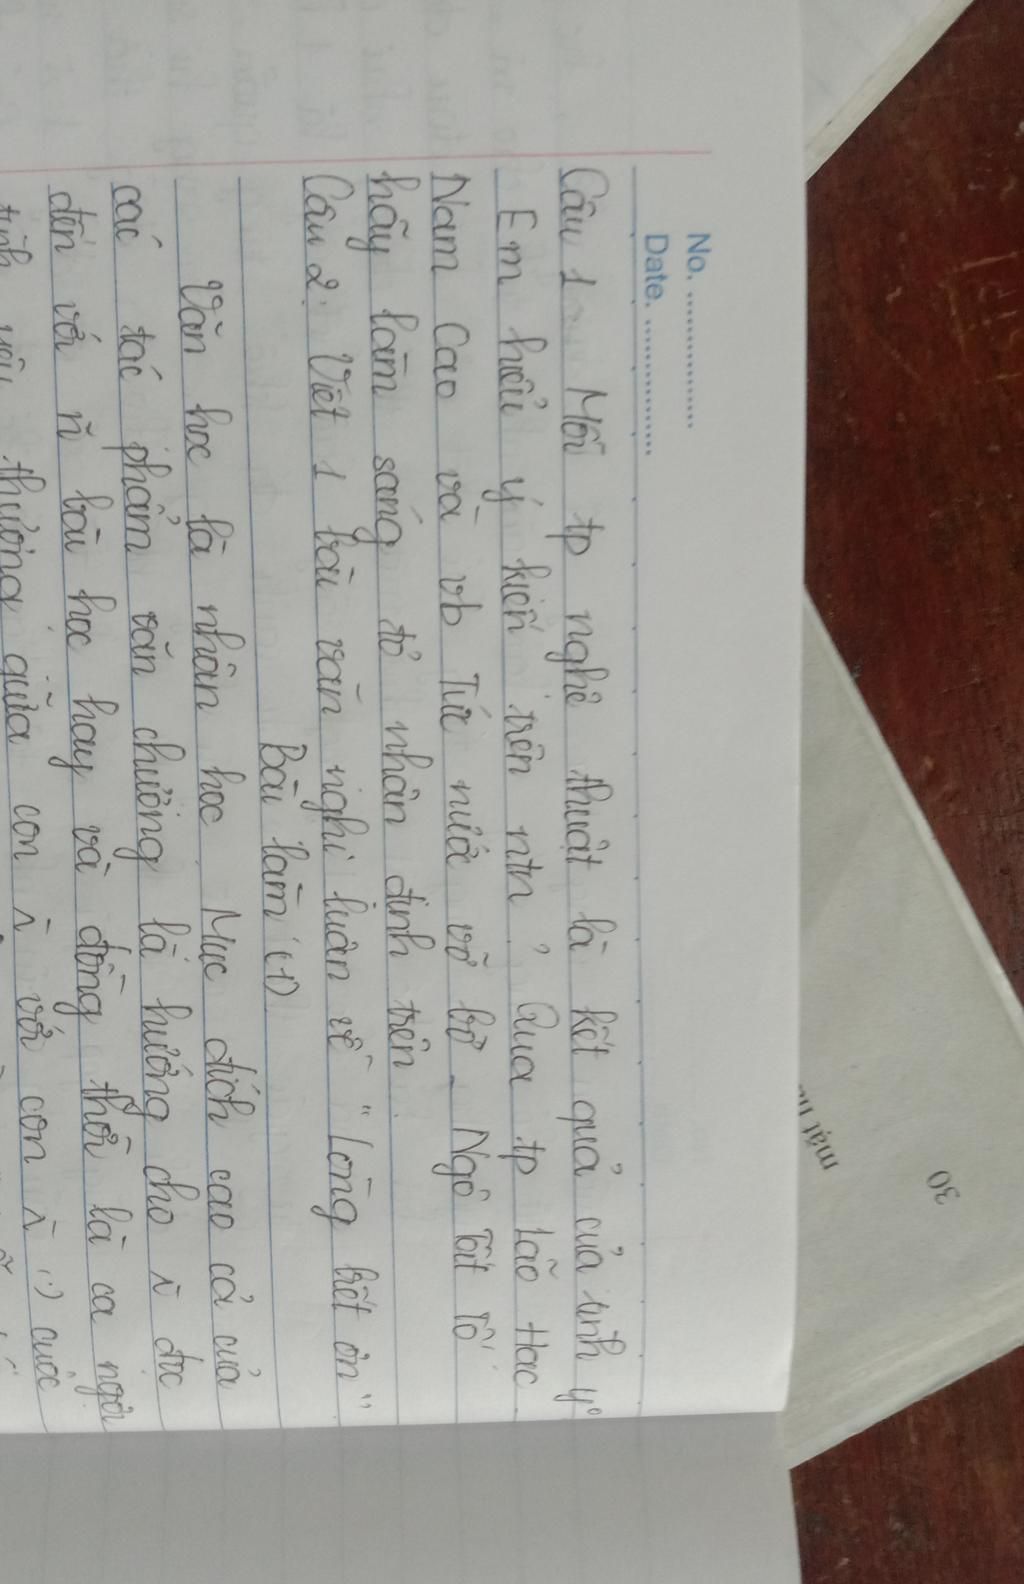 No. ................
Date. ................
Câu 1 Mỗi tp nghệ thuật là kết quả của tình y
Em hiểu ý kiến trên ntn? Qua tp Lão Hạc
Nam Cao và vb Tức nước vỡ bờ - Ngô Tất Tố
hãy làm sáng tỏ nhận định trên.
Câu 2: Viết 1 bài văn nghị luận về "Lòng biết ơn"
Bài làm (1)
Văn học là nhân học. Mục đích cao cả của
các tác phẩm văn chương là hướng cho ñ đọc
đến với ~ bài học hay và đồng thời là ca ngợi
tình yêu thương giữa con ñ với con ñ cuộc
30
mặt